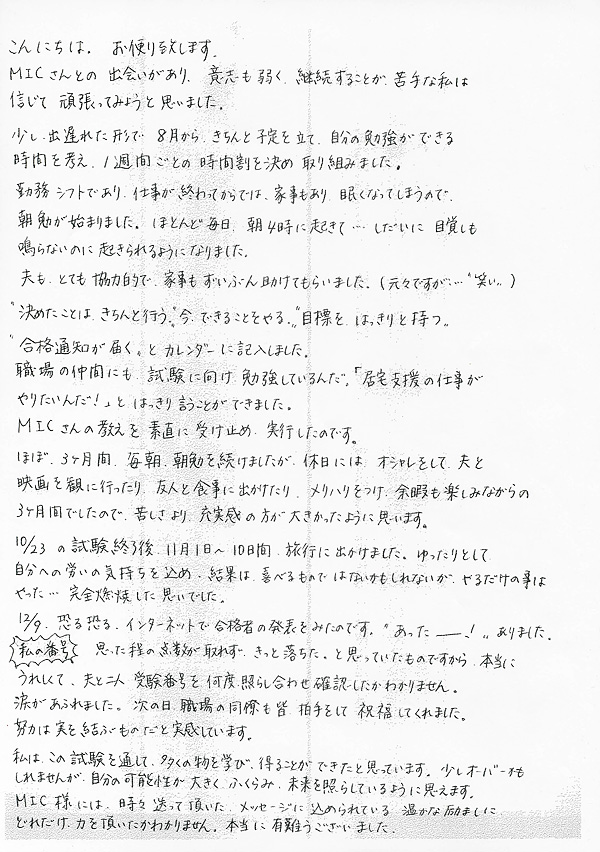 こんにちは。 お便り致します。
MICさんとの 出会いがあり、意志も弱く、継続することが、苦手な私は
信じて 頑張ってみようと思いました。
少し 出遅れた形で 8月から、きちんと予定を立て、自分の勉強ができる
時間を考え、1週間ごとの時間割を決め 取り組みました。
勤務シフトであり、仕事が終わってからでは、家事もあり、眠くなってしまうので、
朝勉が始まりました。ほとんど毎日、朝4時に起きて…しだいに 目覚しも
鳴らないのに起きられるようになりました。
夫も、とても 協力的で、家事も ずいぶん助けてもらいました。(元々ですが…〝笑い〟)
〝決めたことは、きちんと行う〟〝今、できることをやる〟〝目標を、はっきりと持つ〟
〝合格通知が届く〟と カレンダーに記入しました。
職場の仲間にも、試験に向け 勉強しているんだ、「居宅支援の仕事が
やりたいんだ!」と はっきり言うことができました。
MICさんの教えを 素直に 受け止め、実行したのです。
ほぼ、3ヶ月間、毎朝、朝勉を続けましたが、休日には、オシャレをして、夫と
映画を観に行ったり、友人と食事に出かけたり、メリハリをつけ、余暇も楽しみながらの
3ヶ月間でしたので、苦しさより、充実感の方が大きかったように思います。
10/23 の試験終了後、11月1日〜10日間、旅行に出かけました。ゆったりとして
自分への労いの気持ちを込め、結果は、喜べるものではないかもしれないが、やるだけの事は
やった… 完全燃焼した思いでした。
12/9、恐る恐る、インターネットで合格者の発表をみたのです。〝あった――!〟ありました。
私の番号 思った程の点数が取れず、きっと落ちた。と思っていたものですから、本当に
うれしくて、夫と二人 受験番号を 何度、照らし合わせ 確認したかわかりません。
涙があふれました。次の日、職場の同僚も皆 拍手をして 祝福してくれました。
努力は実を結ぶものだと実感しています。
私は、この試験を通して、多くの物を学び、得ることができたと思っています。少しオーバーかも
しれませんが、自分の可能性が大きく ふくらみ、未来を照らしているように思えます。
MIC様には、時々 送って頂いた、メッセージに込められている 温かな励ましに
どれだけ、力を頂いたかわかりません。本当に 有難うございました。